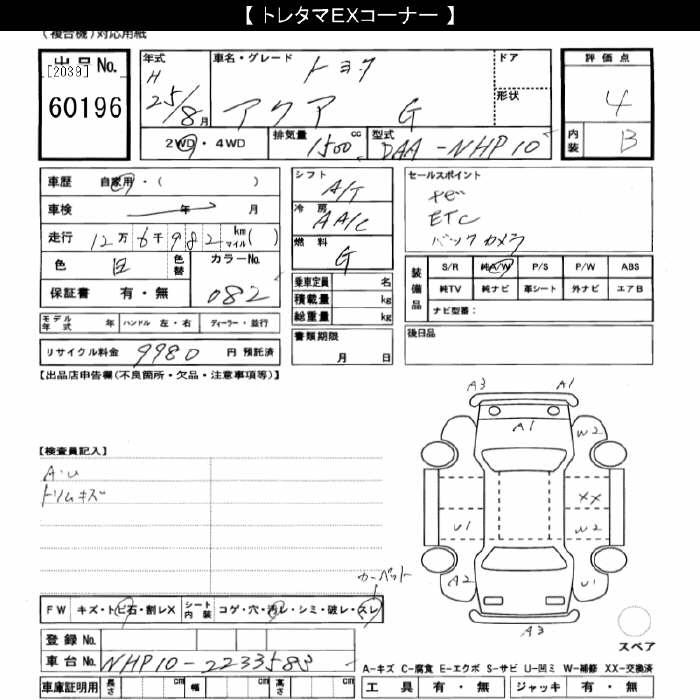 【 トレタマEXコーナー 】
(複合機)対応用紙
出品No.
[2039]
60196
年式 H 25/8月
車名・グレード トヨタ
アクア G
ドア
形状
評価点
4
内装 B
2WD・4WD
排気量 1500 cc
型式 DAA-NHP10
車歴 自家用・( )
車検 年 月
走行 12万6千982 km マイル( )
色 白 色替 カラーNo. 082
保証書 有・無
シフト A/T
冷房 AA/C
燃料 G
乗車定員 名
積載量 kg
総重量 kg
セールスポイント
ナビ
ETC
バックカメラ
装備品
S/R 純A/W P/S P/W ABS
純TV 純ナビ 革シート 外ナビ エアB
ナビ型番:
モデル年式 年 ハンドル 左・右 ディーラー・並行
リサイクル料金 9980 円 預託済
書類期限
月 日
後日品
【出品店申告欄(不良箇所・欠品・注意事項等)】
【検査員記入】
A・U
トリムキズ
A3 A1
A1
W2
XX
U1 W2
A2 U1
A3
スペア
カーペット
FW キズ・トビ石・割レX シート内装 コゲ・穴・汚レ・シミ・破レ・スレ
登録No.
車台No. NHP10-2233583
車庫証明用 長さ cm 幅 cm 高さ cm
A-キズ C-腐食 E-エクボ S-サビ U-凹ミ W-補修 XX-交換済
工具 有・無 ジャッキ 有・無